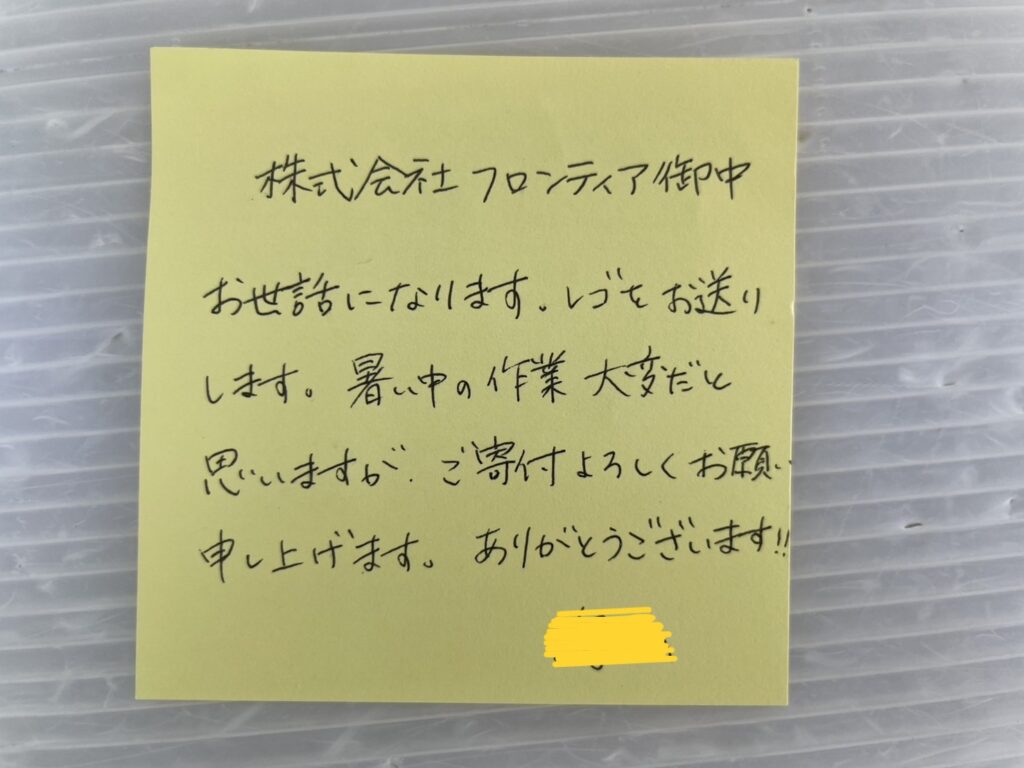 株式会社フロンティア御中
お世話になります。レゴをお送り
します。暑い中の作業大変だと
思いますが、ご寄付よろしくお願い
申し上げます。ありがとうございます!!